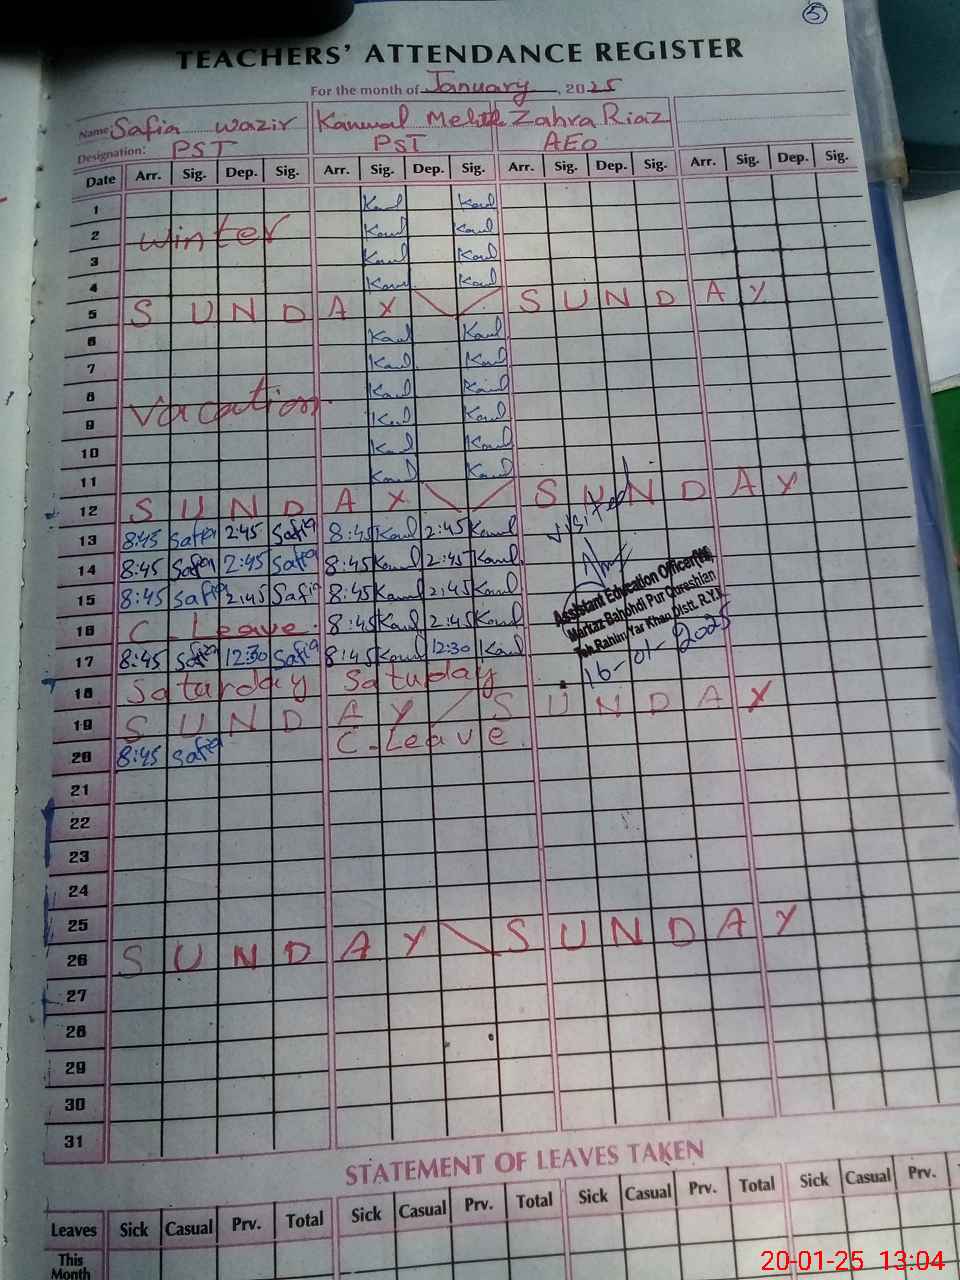 5
TEACHERS' ATTENDANCE REGISTER
For the month of January, 2025
Name Safia wazir Kanwal Zahra Riaz
Designation: PST PST AEO
Date Arr. Sig. Dep. Sig. Arr. Sig. Dep. Sig. Arr. Sig. Dep. Sig. Arr. Sig. Dep. Sig.
1 Kanl Kanl
2 winter Kanl Kanl
3 Kanl Kanl
4 Kanl Kanl
5 SUNDAY SUNDAY
6 Kanl Kanl
7 Kanl Kanl
8 Vacation Kanl Kanl
9 Kanl Kanl
10 Kanl Kanl
11 Kanl Kanl
12 SUNDAY SUNDAY
13 8:45 Safia 2:45 Safia 8:45 Kanl 2:45 Kanl visited
14 8:45 Safia 2:45 Safia 8:45 Kanl 2:45 Kanl
15 8:45 Safia 2:45 Safia 8:45 Kanl 2:45 Kanl
16 C-Leave. 8:45 Kanl 2:45 Kanl
17 8:45 Safia 12:30 Safia 8:45 Kanl 12:30 Kanl
Assistant Education Officer
Markaz Bahohdi Pur Qureshian
Teh. Rahim Yar Khan Distt. R.Y.K
16-01-2025
18 Saturday Saturday
19 SUNDAY SUNDAY
20 8:45 Safia C-Leave.
21
22
23
24
25
26 SUNDAY SUNDAY
27
28
29
30
31
STATEMENT OF LEAVES TAKEN
Leaves Sick Casual Prv. Total Sick Casual Prv. Total Sick Casual Prv. Total Sick Casual Prv.
This
Month
20-01-25 13:04